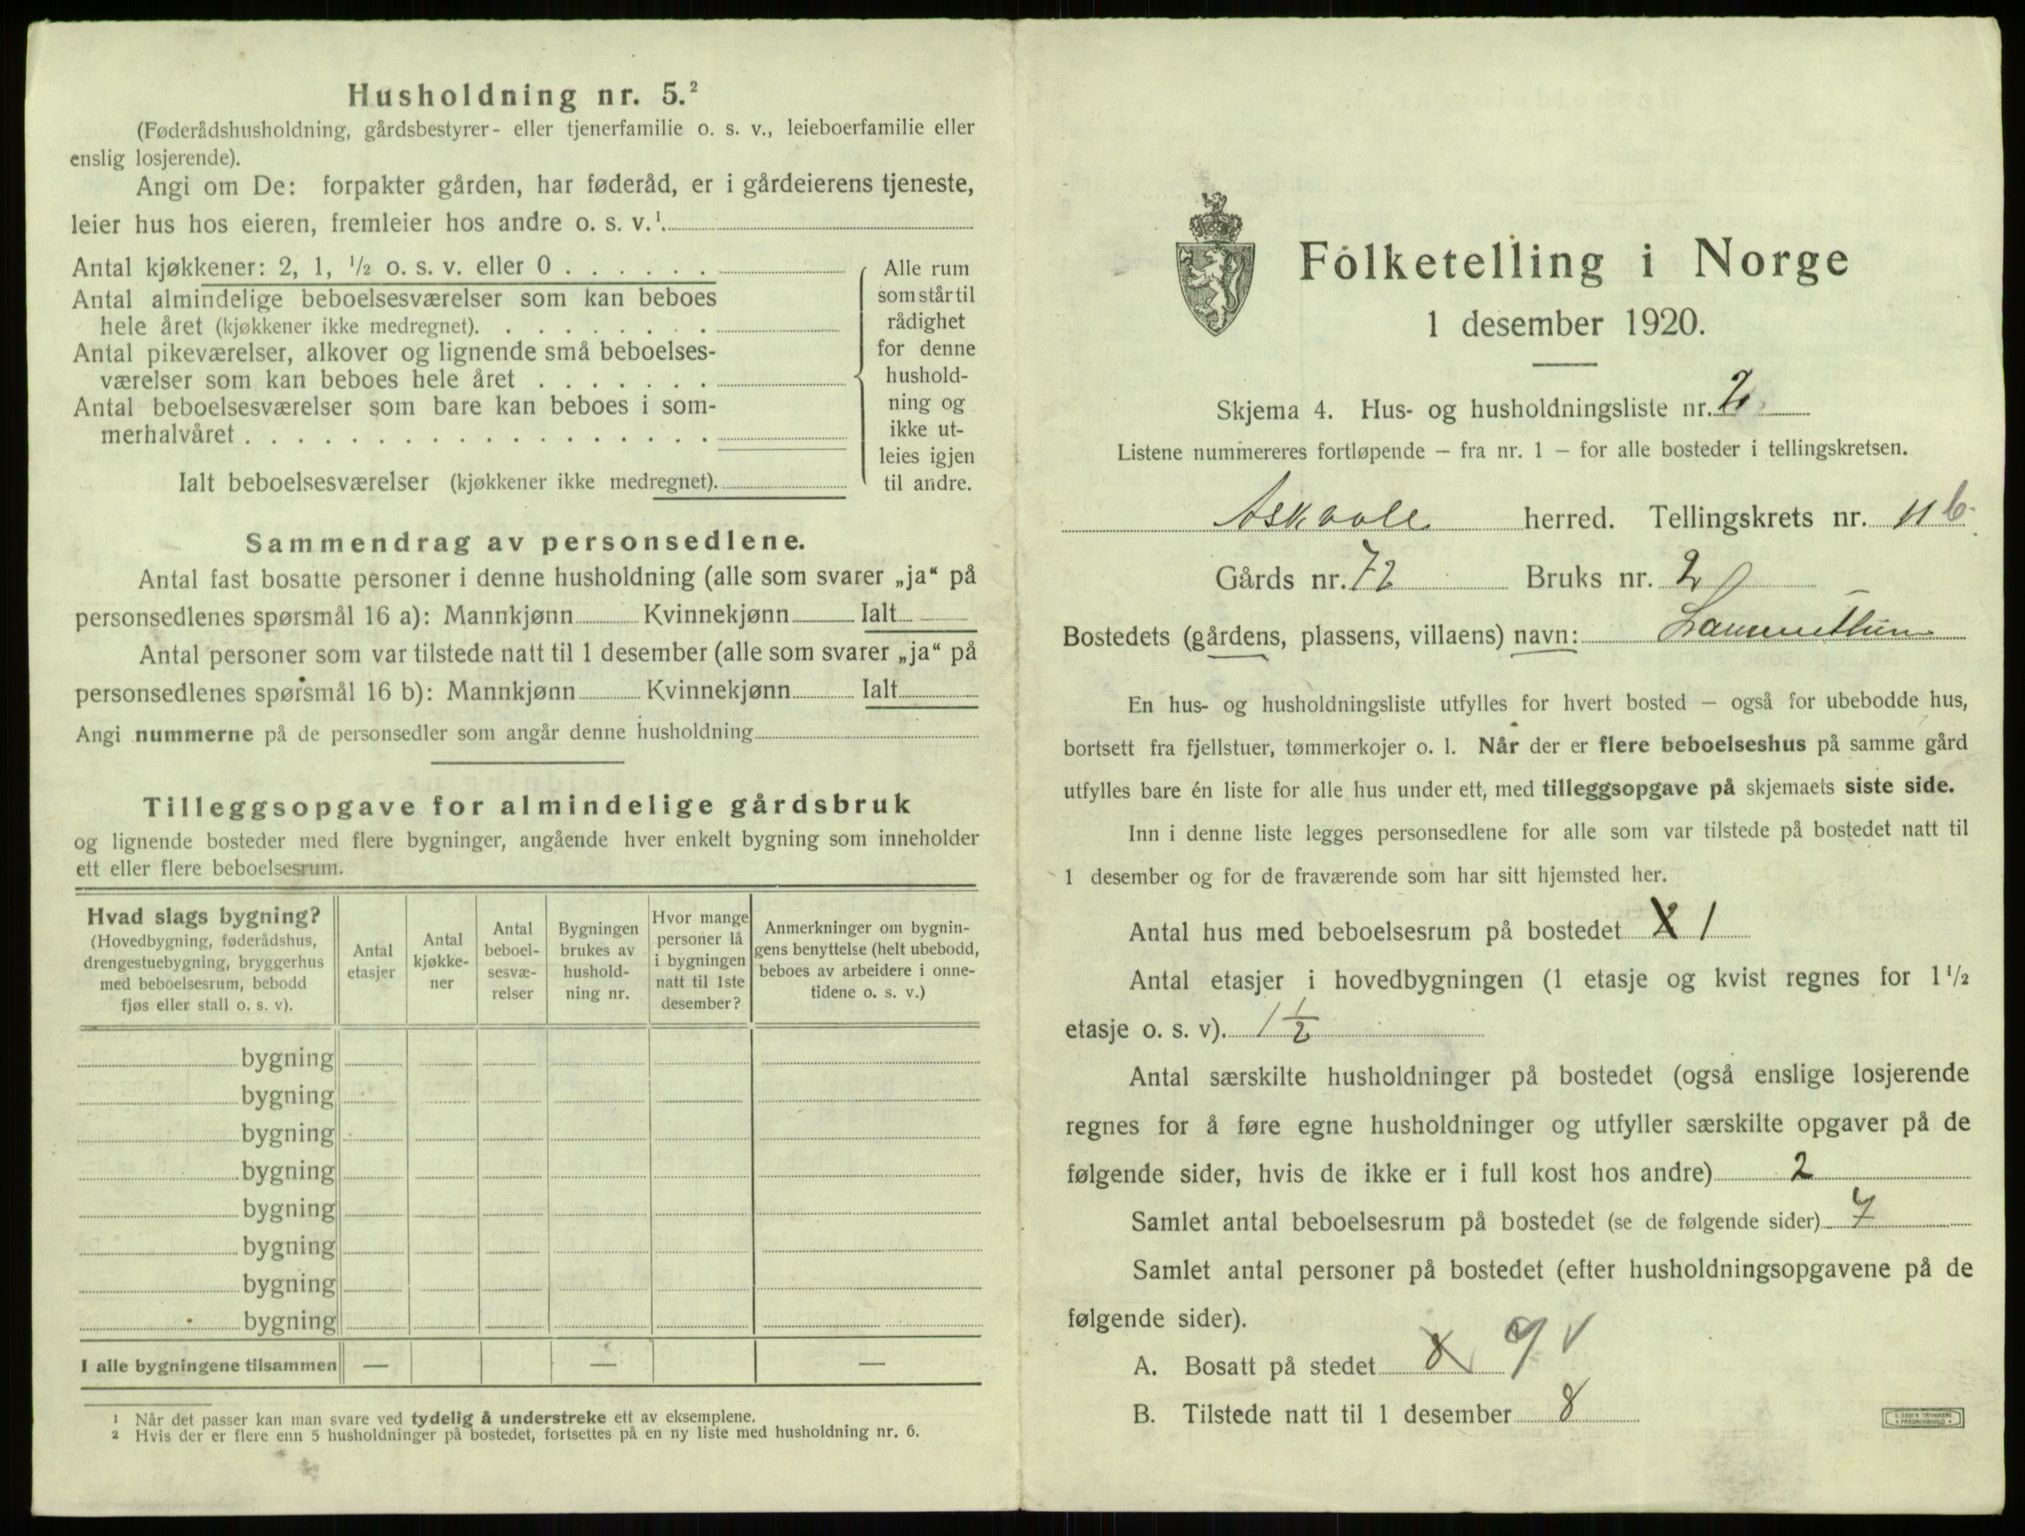 Husholdning nr. 5.²
(Føderådshusholdning, gårdsbestyrer- eller tjenerfamilie o. s. v., leieboerfamilie eller
enslig losjerende).
Angi om De: forpakter gården, har føderåd, er i gårdeierens tjeneste,
leier hus hos eieren, fremleier hos andre o. s. v.¹
Antal kjøkkener: 2, 1, ½ o. s. v. eller 0
Antal almindelige beboelsesværelser som kan beboes
hele året (kjøkkener ikke medregnet).
Antal pikeværelser, alkover og lignende små beboelses-
værelser som kan beboes hele året
Antal beboelsesværelser som bare kan beboes i som-
merhalvåret
Ialt beboelsesværelser (kjøkkener ikke medregnet).
Alle rum
som står til
rådighet
for denne
hushold-
ning og
ikke ut-
leies igjen
til andre.
Sammendrag av personsedlene.
Antal fast bosatte personer i denne husholdning (alle som svarer „ja“ på
personsedlenes spørsmål 16 a): Mannkjønn Kvinnekjønn Ialt
Antal personer som var tilstede natt til 1 desember (alle som svarer „ja“ på
personsedlenes spørsmål 16 b): Mannkjønn Kvinnekjønn Ialt
Angi nummerne på de personsedler som angår denne husholdning
Tilleggsopgave for almindelige gårdsbruk
og lignende bosteder med flere bygninger, angående hver enkelt bygning som inneholder
ett eller flere beboelsesrum.
Hvad slags bygning?
(Hovedbygning, føderådshus,
drengestuebygning, bryggerhus
med beboelsesrum, bebodd
fjøs eller stall o. s. v).
Antal
etasjer
Antal
kjøkke-
ner
Antal
beboel-
sesvæ-
relser
Bygningen
brukes av
hushold-
ning nr.
Hvor mange
personer lå
i bygningen
natt til 1ste
desember?
Anmerkninger om bygnin-
gens benyttelse (helt ubebodd,
beboes av arbeidere i onne-
tidene o. s. v.)
bygning
bygning
bygning
bygning
bygning
bygning
bygning
bygning
I alle bygningene tilsammen — — —
¹ Når det passer kan man svare ved tydelig å understreke ett av eksemplene.
² Hvis der er flere enn 5 husholdninger på bostedet, fortsettes på en ny liste med husholdning nr. 6.
Folketelling i Norge
1 desember 1920.
Skjema 4. Hus- og husholdningsliste nr. 2
Listene nummereres fortløpende – fra nr. 1 – for alle bosteder i tellingskretsen.
Askvoll herred. Tellingskrets nr. 11 b.
Gårds nr. 72 Bruks nr. 2
Bostedets (gårdens, plassens, villaens) navn:
En hus- og husholdningsliste utfylles for hvert bosted – også for ubebodde hus,
bortsett fra fjellstuer, tømmerkojer o. l. Når der er flere beboelseshus på samme gård
utfylles bare én liste for alle hus under ett, med tilleggsopgave på skjemaets siste side.
Inn i denne liste legges personsedlene for alle som var tilstede på bostedet natt til
1 desember og for de fraværende som har sitt hjemsted her.
Antal hus med beboelsesrum på bostedet 1
Antal etasjer i hovedbygningen (1 etasje og kvist regnes for 1½
etasje o. s. v). 1 ½
Antal særskilte husholdninger på bostedet (også enslige losjerende
regnes for å føre egne husholdninger og utfyller særskilte opgaver på de
følgende sider, hvis de ikke er i full kost hos andre) 2
Samlet antal beboelsesrum på bostedet (se de følgende sider) 7
Samlet antal personer på bostedet (efter husholdningsopgavene på de
følgende sider).
A. Bosatt på stedet 8 9 v
B. Tilstede natt til 1 desember 8